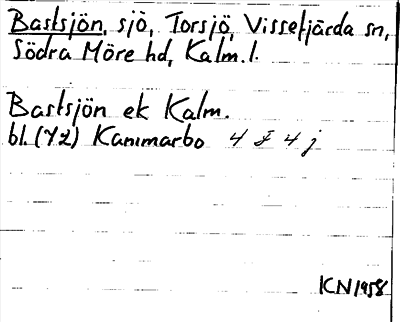 Bastsjön, sjö, Torsjö, Vissefjärda sn,
Södra Möre hd, Kalm. l.
Bastsjön ek Kalm.
bl. (Y2) Kammarbo 4 F 4 j
KN 1958